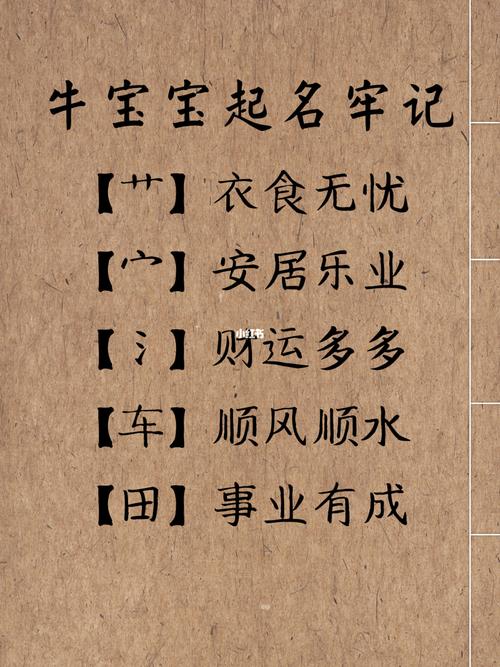 牛宝宝起名牢记
【艹】衣食无忧
【宀】安居乐业
【氵】财运多多
小红书
【车】顺风顺水
【田】事业有成